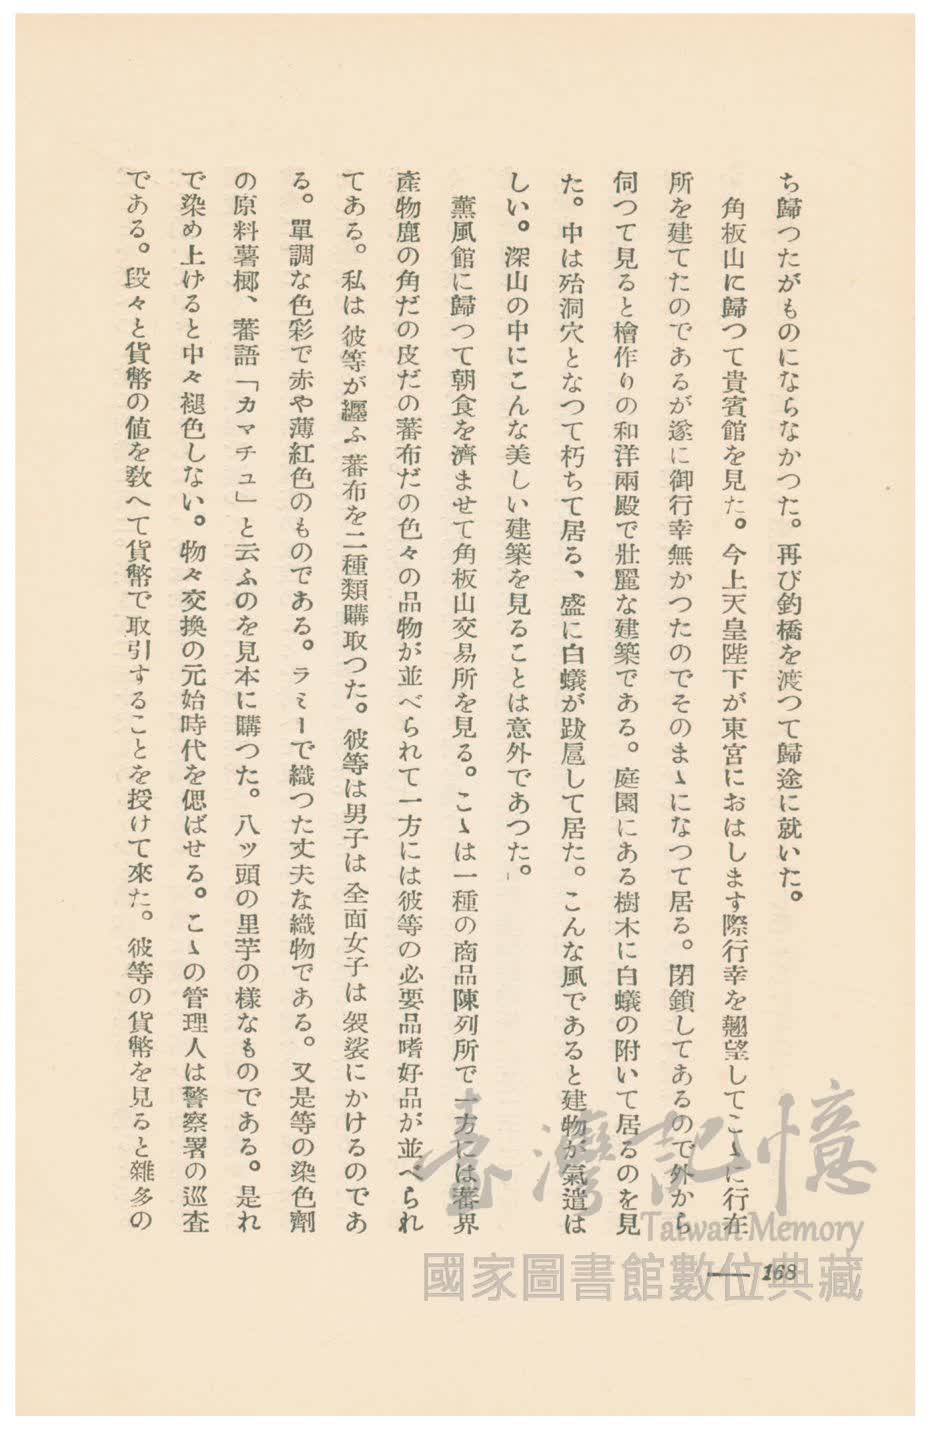 ち歸つたがものにならなかつた。再び釣橋を渡つて歸途に就いた。
角板山に歸つて貴賓館を見た。今上天皇陛下が東宮におはします際行幸を翹望してこゝに行在
所を建てたのであるが遂に御行幸無かつたのでそのまゝになつて居る。閉鎖してあるので外から
伺つて見ると檜作りの和洋兩殿で壯麗な建築である。庭園にある樹木に白蟻の附いて居るのを見
た。中は殆洞穴となつて朽ちて居る、盛に白蟻が跋扈して居た。こんな風であると建物が氣遣は
しい。深山の中にこんな美しい建築を見ることは意外であつた。
薰風館に歸つて朝食を濟ませて角板山交易所を見る。こゝは一種の商品陳列所で一方には蕃界
產物鹿の角だの皮だの蕃布だの色々の品物が並べられて一方には彼等の必要品嗜好品が並べられ
てある。私は彼等が纒ふ蕃布を二種類購取つた。彼等は男子は全面女子は袈裟にかけるのであ
る。單調な色彩で赤や薄紅色のものである。ラミーで織つた丈夫な織物である。又是等の染色劑
の原料薯榔、蕃語「カマチュ」と云ふのを見本に購つた。八ッ頭の里芋の樣なものである。是れ
で染め上けると中々褪色しない。物々交換の元始時代を偲ばせる。こゝの管理人は警察署の巡査
である。段々と貨幣の値を敎へて貨幣で取引することを授けて來た。彼等の貨幣を見ると雜多の
— 168
臺灣記憶
Taiwan Memory
國家圖書館數位典藏